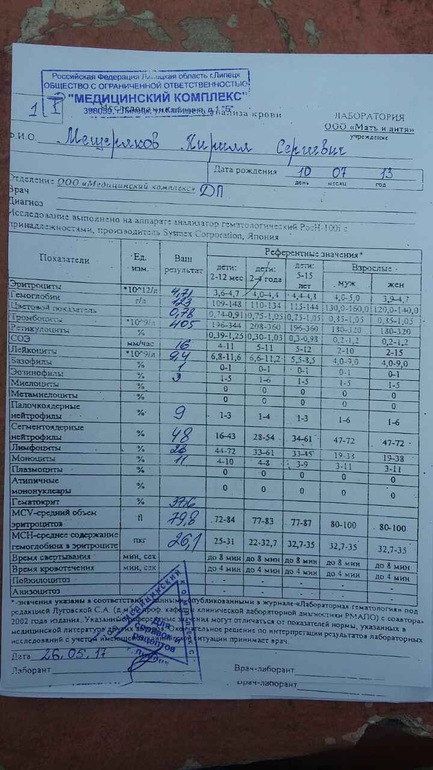 Российская Федерация Липецкая область г.Липецк
ОБЩЕСТВО С ОГРАНИЧЕННОЙ ОТВЕТСТВЕННОСТЬЮ
"МЕДИЦИНСКИЙ КОМПЛЕКС"
анализа крови
ЛАБОРАТОРИЯ
ООО «Мать и дитя»
учреждение
Ф.И.О. Мещеряков Кирилл Сергеевич
Дата рождения 10 07 13
день месяц год
Отделение ООО «Медицинский комплекс» ДП
Врач
Диагноз
Исследование выполнено на аппарате анализатор гематологический
принадлежностями, производитель Sysmex Corporation, Япония
Показатели Ед. изм. Ваш результат Референтные значения*
дети: 2-12 мес дети: 2-4 года дети: 5-15 лет Взрослые муж жен
Эритроциты *10^12/л 4,71 3,6-4,7 4,0-4,4 4,4-4,8 4,0-5,0 3,9-4,7
Гемоглобин г/л 123 109-148 110-134 115-144 130,0-160,0 120,0-140,0
Цветовой показатель 0,78 0,74-0,91 0,75-1,05 0,75-1,05 0,85-1,05 0,85-1,05
Тромбоциты *10^9/л 405 196-344 208-360 196-360 180-320 180-320
Ретикулоциты % 0,39-1,25 0,30-1,03 0,3-0,98 0,2-1,2 0,2-1,2
СОЭ мм/час 16 4-11 5-11 5-12 2-10 2-15
Лейкоциты *10^9/л 9,4 6,8-11,6 6,6-11,2 5,5-8,5 4,0-9,0 4,0-9,0
Базофилы % 1 0-1 0-1 0-1 0-1 0-1
Эозинофилы % 3 1-5 1-6 1-5 1-5 1-5
Миелоциты % 0 0 0 0 0
Метамиелоциты % 0 0 0 0 0
Палочкоядерные нейтрофилы % 9 1-3 1-4 1-3 1-6 1-6
Сегментоядерные нейтрофилы % 48 16-43 28-54 34-61 47-72 47-72
Лимфоциты % 28 44-72 33-61 33-45 19-38 19-38
Моноциты % 11 4-10 4-8 3-9 3-11 3-11
Плазмоциты % 0 0 0 0 0
Атипичные мононуклеары % 0 0 0 0 0
Гематокрит % 37,6
MCV-средний объем эритроцитов fl 79,8 72-84 77-83 77-87 80-100 80-100
МСН-среднее содержание гемоглобина в эритроците пкг 26,1 25-31 22-32,7 32,7-35 32,7-35 32,7-35
Время свертывания мин, сек до 8 мин до 8 мин до 8 мин до 8 мин до 8 мин
Время кровотечения мин, сек до 4 мин до 4 мин до 4 мин до 4 мин до 4 мин
Пойкилоцитоз - - - - -
Анизоцитоз - - - - -
* значения указаны в соответствии с данными, опубликованными в журнале «Лабораторная гематология» под
редакцией Луговской С.А. проф. кафедры клинической лабораторной диагностики РМАПО) с соавтора
2002 года издания. значения могут отличаться от показателей нормы, указанных в
медицинской литературе Окончательное решение по интерпретации результатов лабораторных
исследований с учетом ситуации принимает врач.
Дата 26.05.17
Врач-лаборант
Лаборант Врач-лаборант